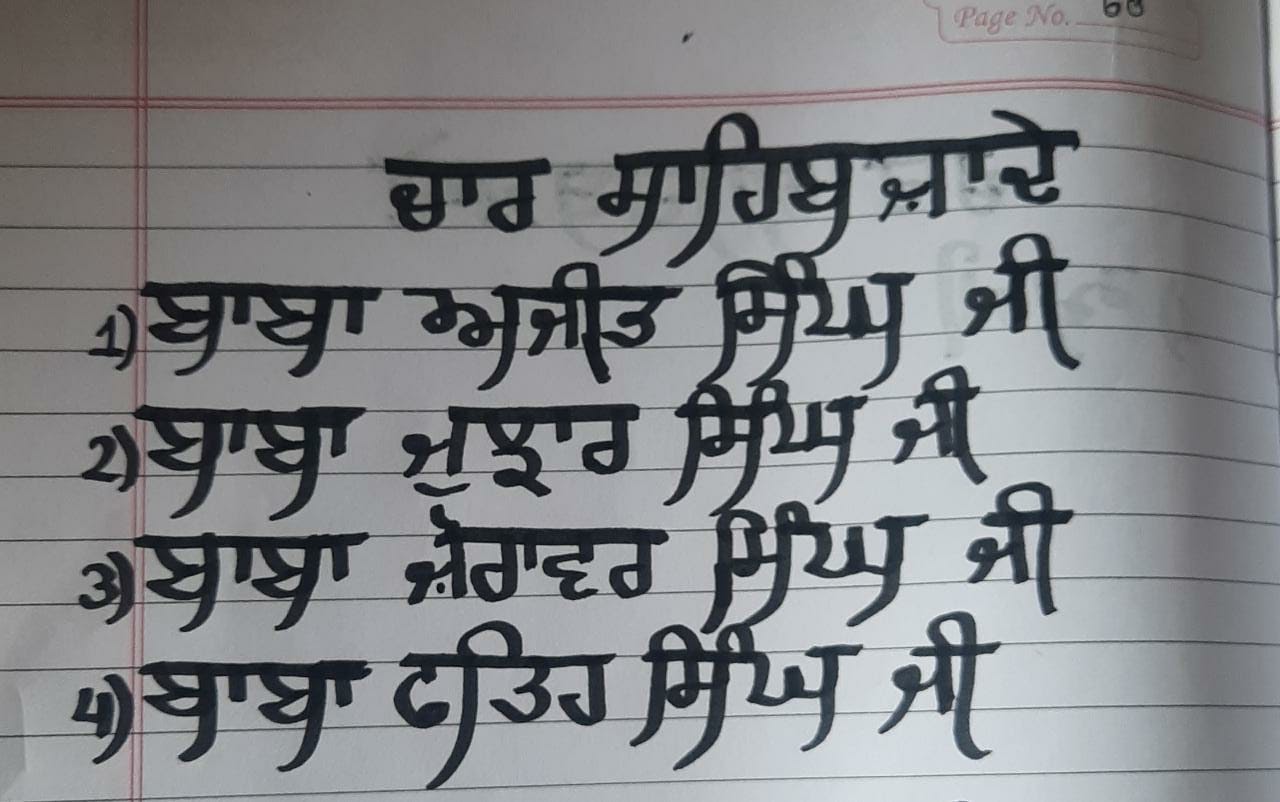 Page No. 60
ਚਾਰ ਸਾਹਿਬਜ਼ਾਦੇ
1) ਬਾਬਾ ਅਜੀਤ ਸਿੰਘ ਜੀ
2) ਬਾਬਾ ਜੁਝਾਰ ਸਿੰਘ ਜੀ
3) ਬਾਬਾ ਜ਼ੋਰਾਵਰ ਸਿੰਘ ਜੀ
4) ਬਾਬਾ ਫਤਿਹ ਸਿੰਘ ਜੀ